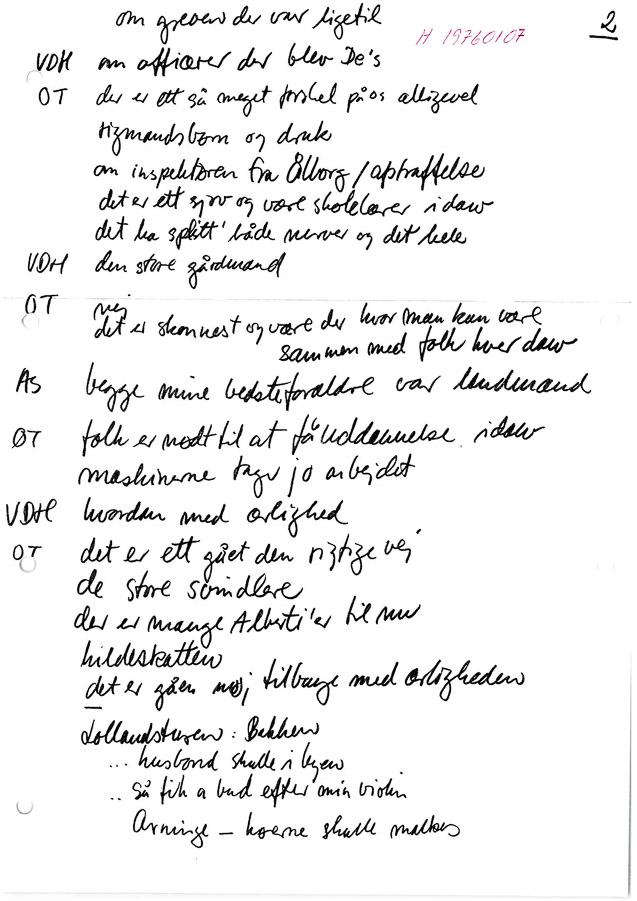 om greven der var ligetil
2
H 19760107
VDH om officerer der blev De's
OT der er ett så meget forskel på os alligevel
rigmandsbørn og druk
om inspektøren fra Ålborg /aptraffelse
det er ett sjov og være skolelærer idaw
det ha splitt' både nerver og det hele
VDH den store gårdmand
OT nej
det er skønnest og være der hvor man kan være
sammen med folk hver daw
AS begge mine bedsteforældre var landmænd
ØT folk er nødt til at få uddannelse idaw
maskinerne tager jo arbejdet
VDH hvordan med ærlighed
OT det er ett gået den rigtige vej
de store svindlere
der er mange Alberti'er til nu
kildeskatten
det er gåen nøj tilbage med ærligheden
Lollandsturen: Bakken
... husbond skulle i byen
.. så fik a bud efter min violin
Arninge – køerne skulle malkes